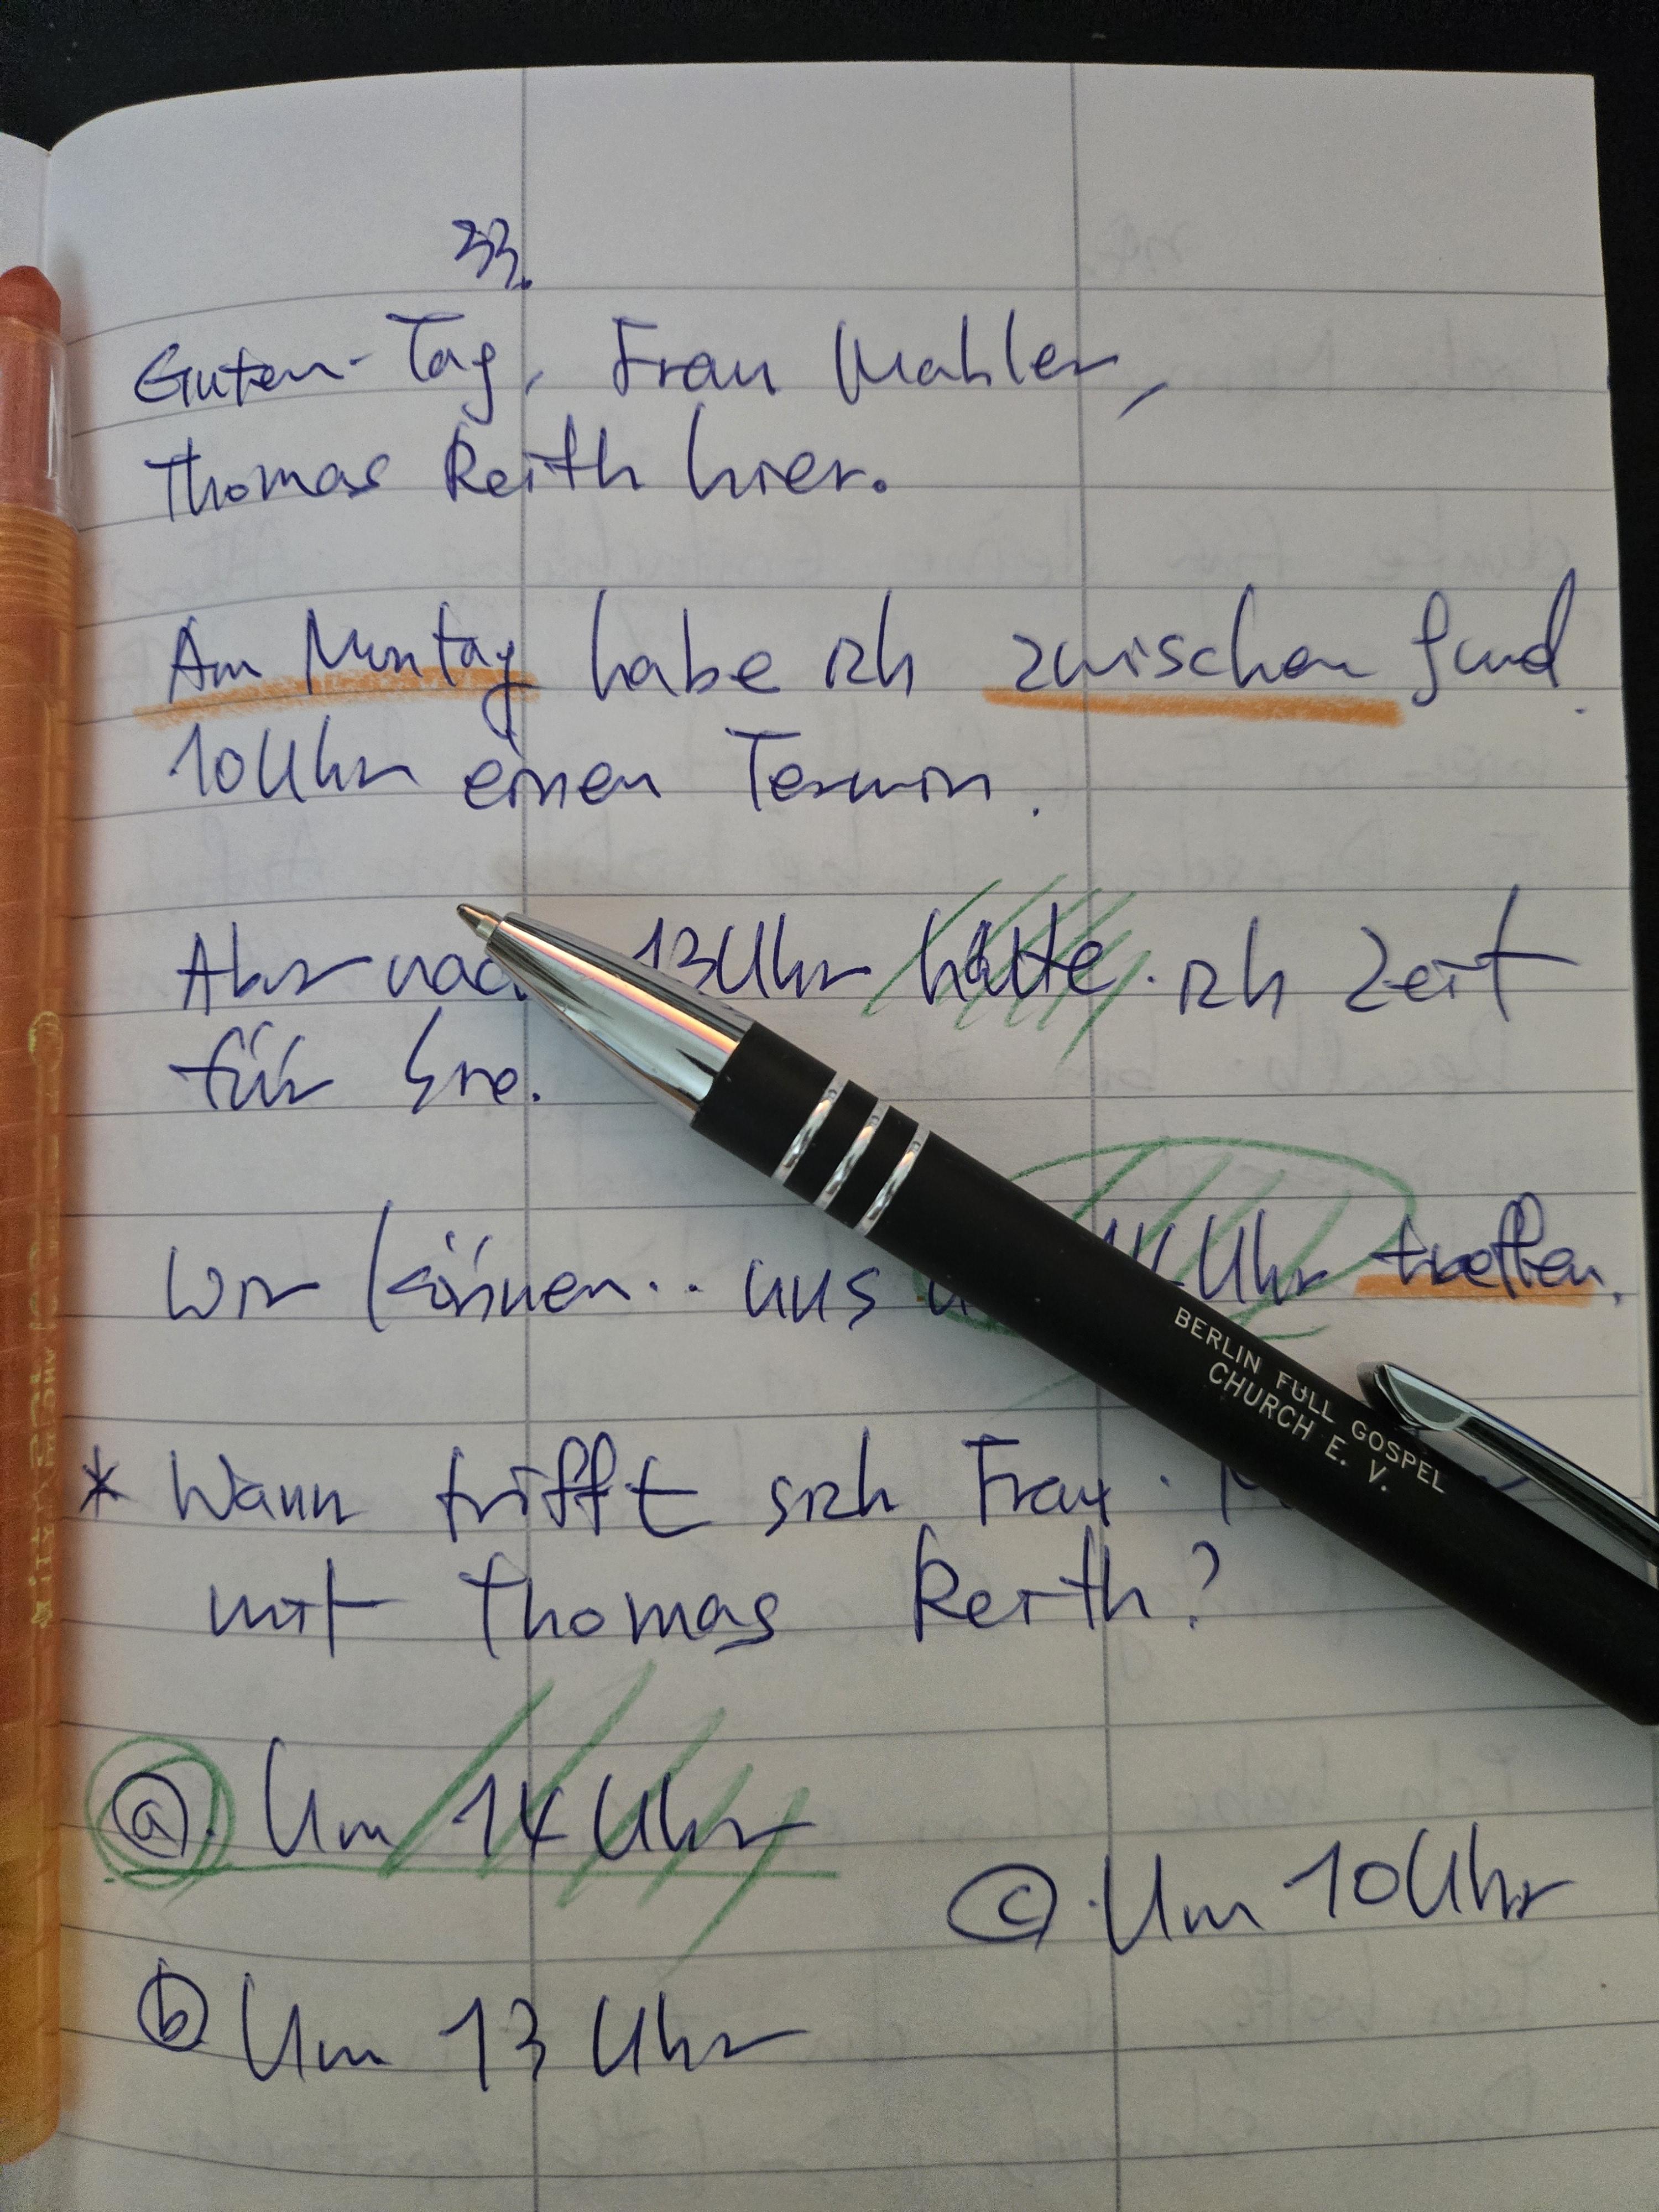 33.
Guten Tag, Frau Mahler,
Thomas Reith hier.
Am Montag habe ich zwischen 9 und
10 Uhr einen Termin.
Aber 13 Uhr hätte ich Zeit
für Sie.
Wir können uns 14 Uhr treffen.
BERLIN FULL GOSPEL
CHURCH E. V.
* Wann trifft sich Frau
mit Thomas Reith?
ⓐ. Um 14 Uhr
ⓒ. Um 10 Uhr
ⓑ Um 13 Uhr